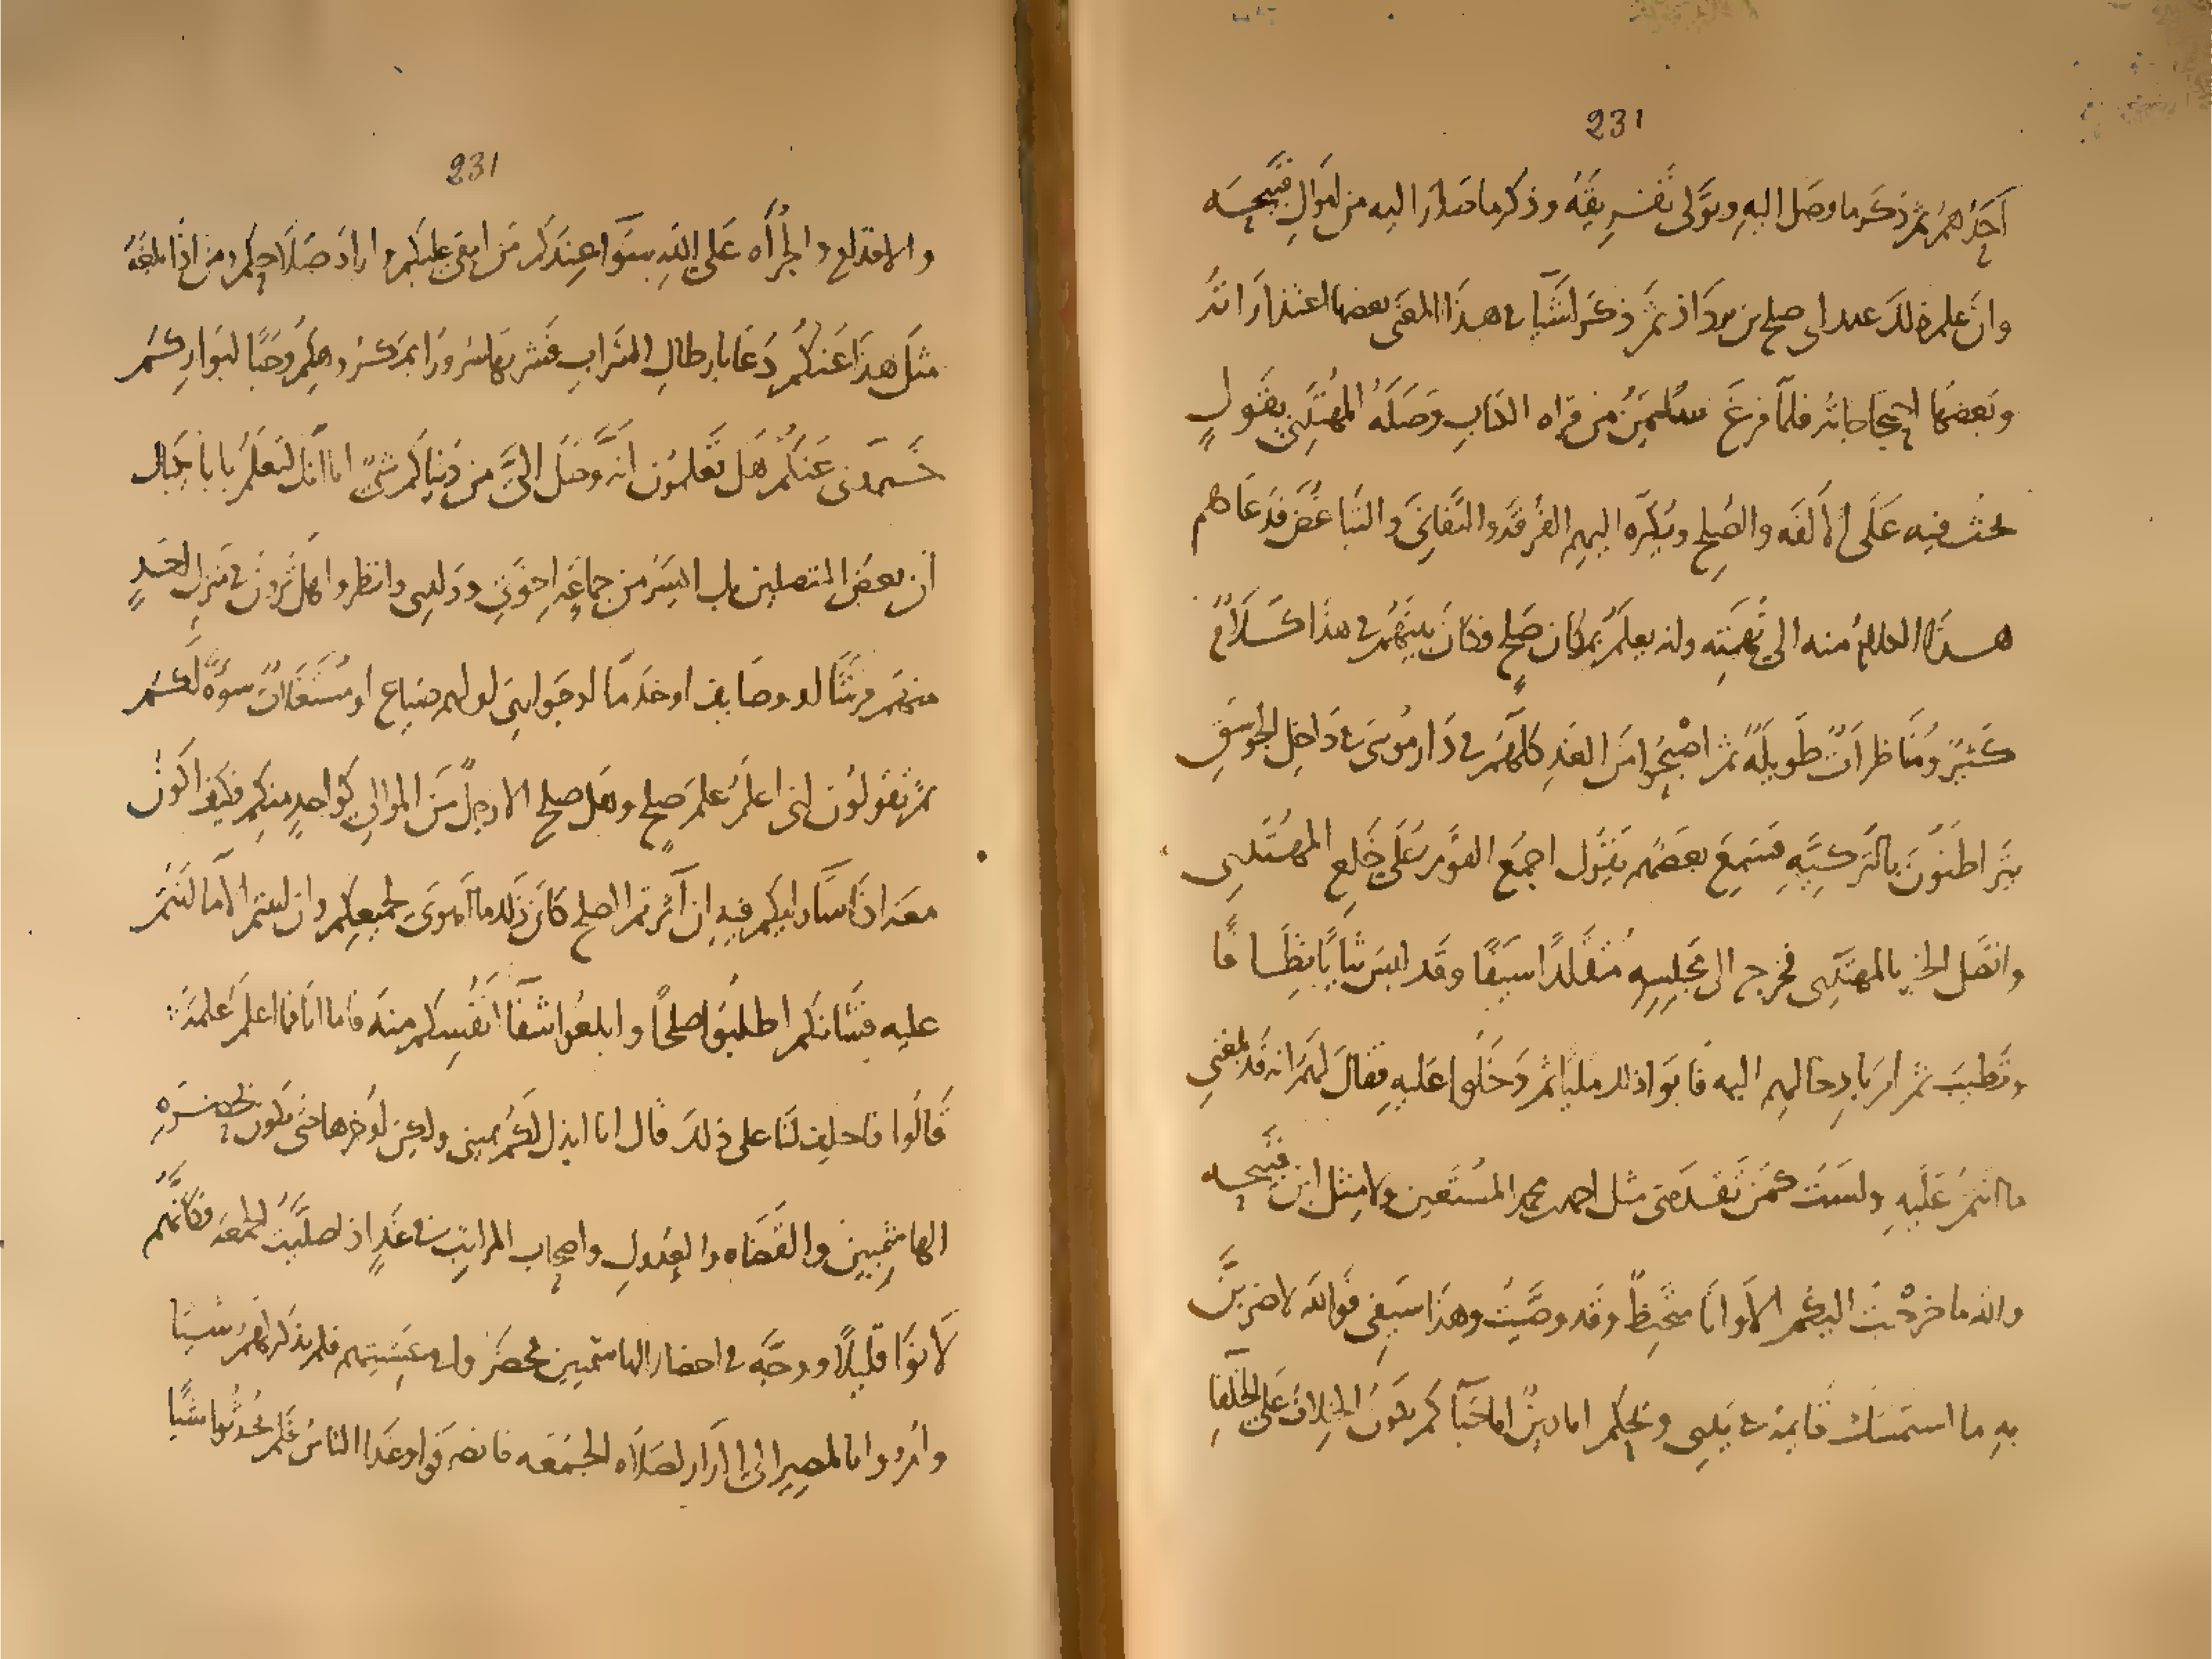 231
أحدهم ثم ذكر ما وصل اليه وتولى تفريقه وذكر ما صار اليه من أموال قبيحه
وان علم ذلك عند ابي صلح بن يزداذ ثم ذكر أشيا في هذا المعنى بعضها اعتذار اثر
وبعضها احتجاجا به فلما فرغ سليمن من قراه الكتاب وصله المهتدي بقول
يحث فيه على الالفه والصلح ويكره اليهم الفرقه والتفاني والتباغض فدعاهم
هذا الكلام منه الى تهمته وانه يعلم بمكان صلح فكان بينهم في هذا كلام
كثير ومناظرات طويله ثم اصبحوا من الغد كلهم في دار موسى في داخل الجوسق
يتراطنون بالتركيه فسمع بعضهم يقول اجمع القوم على خلع المهتدي
واتصل الخبر بالمهتدي فخرج الى مجلسه متقلدا سيفا وقد لبس ثيابا نظافا
وتطيب ثم امر بادخالهم اليه فابوا ذلك مليا ثم دخلوا عليه فقال لهم انه قد بلغني
ما انتم عليه ولست كمن تقدمني مثل احمد بن محمد المستعين ولا مثل ابن قبيحه
والله ما خرجت اليكم الا وانا متحنط وقد وصيت وهذا سيفي فوالله لاضربن
به ما استمسك قايمه في يدي ويحكم اما دين اما حيا كم يكون الخلاف على الخلفا
231
والاقدام والجرأه على الله سوا عندكم من ابقى عليكم واراد صلاحكم ومن اذا بلغه
مثل هذا عنكم دعا بارطال الشراب فشربها سرورا بمكروهكم وحبا لبواركم
خبروني عنكم هل تعلمون انه وصل الي من دنياكم شي اما انك لتعلم يا بايكباك
ان بعض المتصلين بك ايسر من جماعه اخوتي وولدي وانظروا هل ترون في منزل احد
منهم فرشا او وصايف او خدما او جواري او لهم ضياع او مستغلات سوه لكم
ثم تقولون اني اعلم علم صلح وهل صلح الا رجل من الموالي كواحد منكم فكيف اكون
معه اذا سا رايكم فيه ان آثرتم الصلح كان ذلك ما اهوى لجميعكم وان ابيتم الا ما انتم
عليه فشانكم اطلبوا صلحا وابلغوا شفا انفسكم منه فاما انا فما اعلم علمه
قالوا فاحلف لنا على ذلك قال اما ابذل لكم يميني ولكن اوخرها حتى تكون بحضره
الهاشميين والقضاه والعدول واصحاب المراتب في غد اذا صليت الجمعه فكانهم
لانوا قليلا ووجه في احضار الهاشميين فحضروا في عشيتهم فلم يذكر لهم شيئا
وامروا بالمصير الى الدار لصلاه الجمعه فانصرفوا وغدا الناس فلم يحدثوا شيا